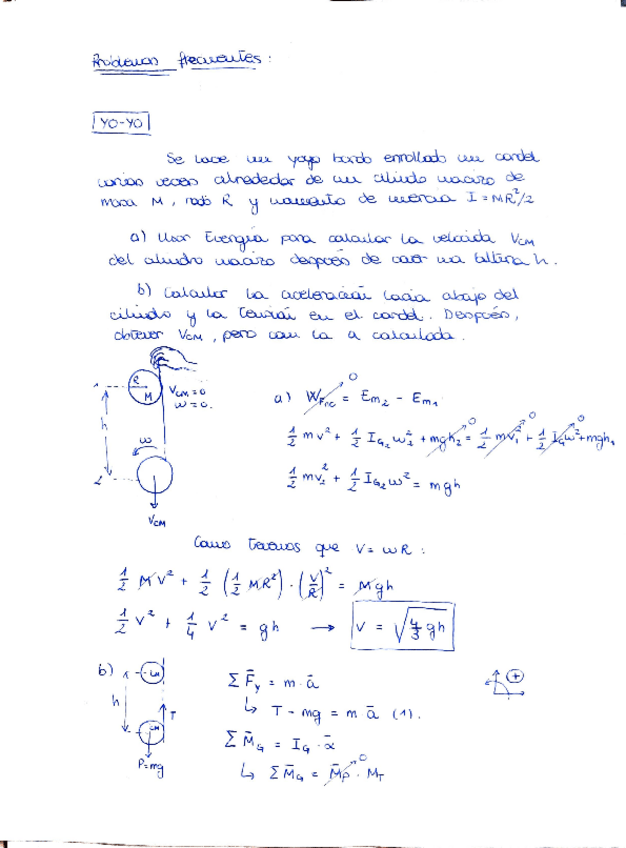 Problemas frecuentes:
YO-YO
Se hace un yoyo burdo enrollado un cordel
varias veces alrededor de un cilindro macizo de
masa M, radio R y momento de inercia I = MR²/2
a) Usar Energía para calcular la velocida V_CM
del cilindro macizo después de caer una altura h.
b) Calcular la aceleración hacia abajo del
cilindro y la tensión en el cordel. Después,
obtener V_CM, pero con la a calculada.
1 R M V_CM = 0
ω = 0.
h
ω
2
V_CM
a) W_FNC 0 = Em₂ - Em₁
½ mv² + ½ I_G₂ ω₂² + mgh₂ 0 = ½ mv₁² 0 + ½ I_G ω² 0 + mgh₁
½ mv₂² + ½ I_G₂ ω² = mgh
Como tenemos que V = ωR :
½ MV² + ½ (½ MR²) · (V/R)² = Mgh
½ V² + ¼ V² = gh → V = √(4/3 gh)
b) 1 CM
h
2 CM T
P=mg
Σ F̄y = m · ā
↳ T - mg = m · ā (1).
Σ M̄_G = I_G · ᾱ
↳ Σ M̄_G = M̄_P 0 · M_T
+